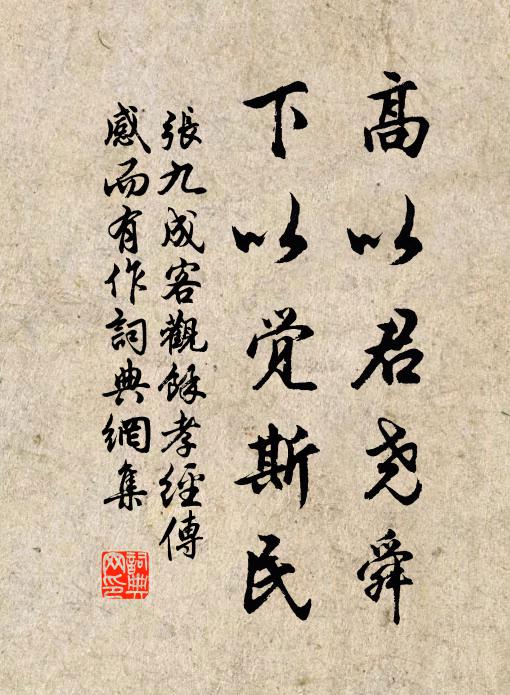 高以君尧舜
下以觉斯民
張九成客觀餘孝經傳
感而有作詞典網集
詞典網印